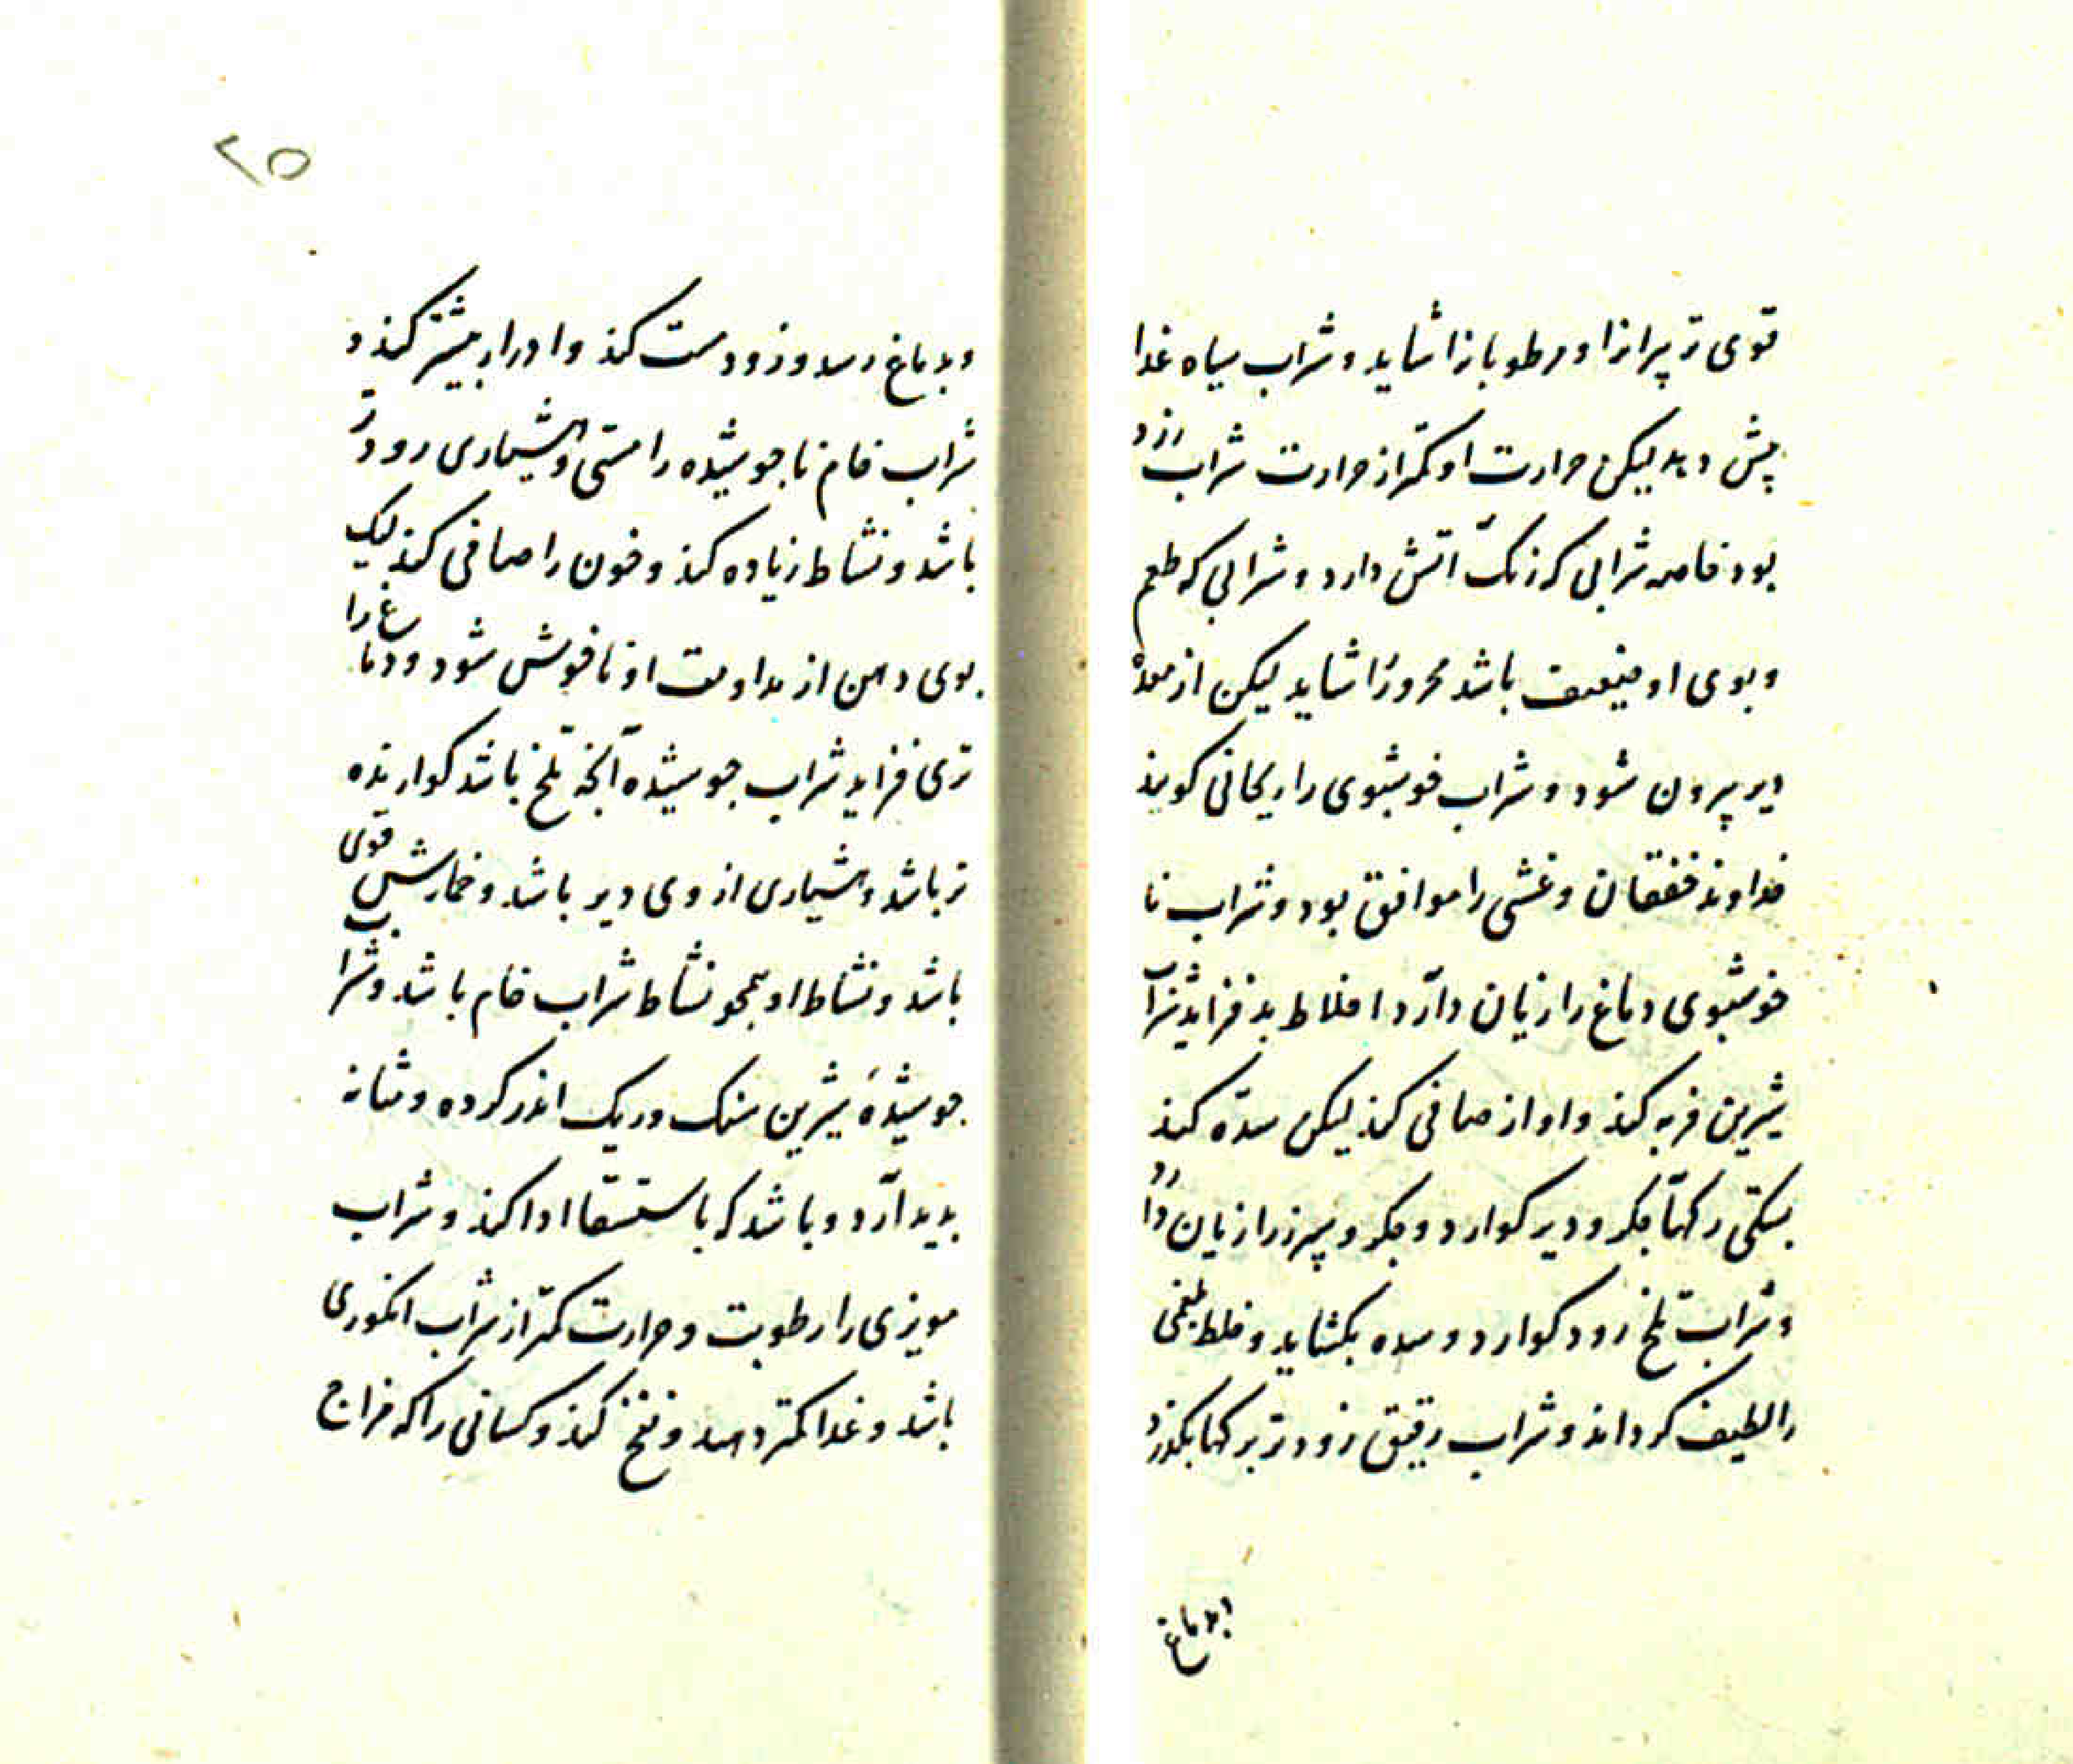 قوی تر پیرانرا و مرطوبانرا شاید و شراب سیاه غذا
بیش دهد لیکن حرارت او کمتر از حرارت شراب زرد
بود خاصه شرابی که رنگ آتش دارد و شرابی که طعم
و بوی او ضعیف باشد محرور را شاید لیکن از معده
دیر بیرون شود و شراب خوشبوی را ریحانی کویند
خداوند خفقان و غشی را موافق بود و شراب نا
خوشبوی دماغ را زیان دارد اخلاط بد فزاید شراب
شیرین فربه کند و اواز صافی کند لیکن سده کند
بستکی رکهآ جکر و دیر کوارد و جکر و سپرز را زیان دارد
و شراب تلخ زود کوارد و سده بکشاید و خلط بلغمی
را لطیف کرداند و شراب رقیق زودتر برکها بکذرد
وبدماغ
۲۵
و بدماغ رسد و زود مست کند و ادرار بیشتر کند و
شراب خام ناجوشیده را مستی و هشیاری زودتر
باشد و نشاط زیاده کند و خون را صافی کند لیک
بوی دهن از مداومت او ناخوش شود و دماغ را
تری فزاید شراب جوشیده آنچه تلخ باشد کوارنده
تر باشد و هشیاری از وی دیر باشد و خمارش قوی
باشد و نشاط او همچو نشاط شراب خام باشد و شراب
جوشیدهٔ شیرین سنک و ریک اندر کرده و مثانه
بدید آرد و باشد که باستسقا ادا کند و شراب
مویزی را رطوبت و حرارت کمتر از شراب انکوری
باشد و غذا کمتر دهد و نفخ کند و کسانی را که مزاج